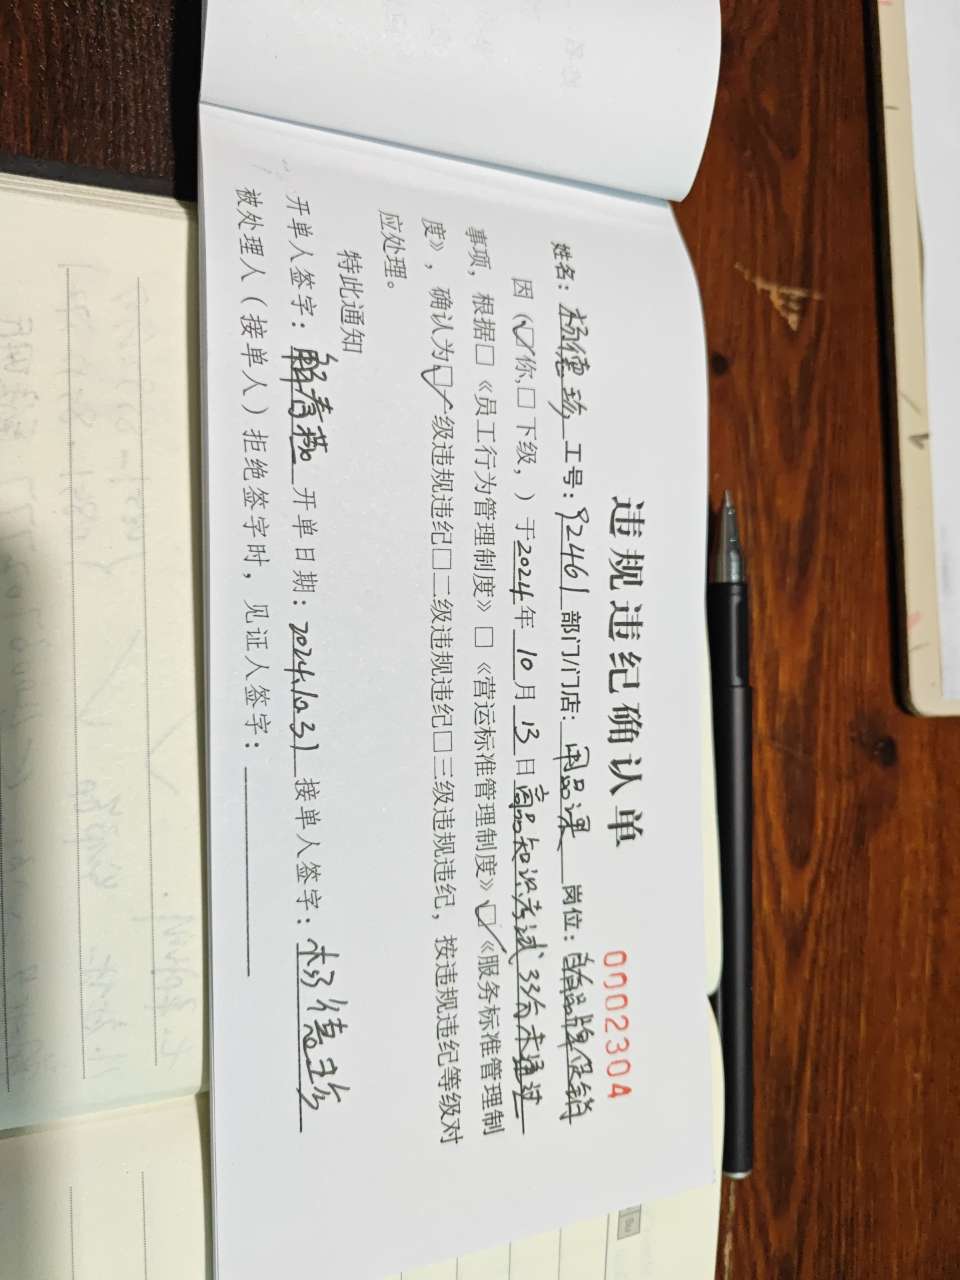 违规违纪确认单
0002304
姓名：杨德珍 工号：92461 部门/门店：用品课 岗位：自有品牌促销
因（☑你，☐下级，）于2024年10月13日商品知识考试33分未通过
事项，根据☐《员工行为管理制度》☐《营运标准管理制度》☑《服务标准管理制
度》，确认为☑一级违规违纪☐二级违规违纪☐三级违规违纪，按违规违纪等级对
应处理。
特此通知
开单人签字：解春燕 开单日期：2024.10.31 接单人签字：杨德珍
被处理人（接单人）拒绝签字时，见证人签字：